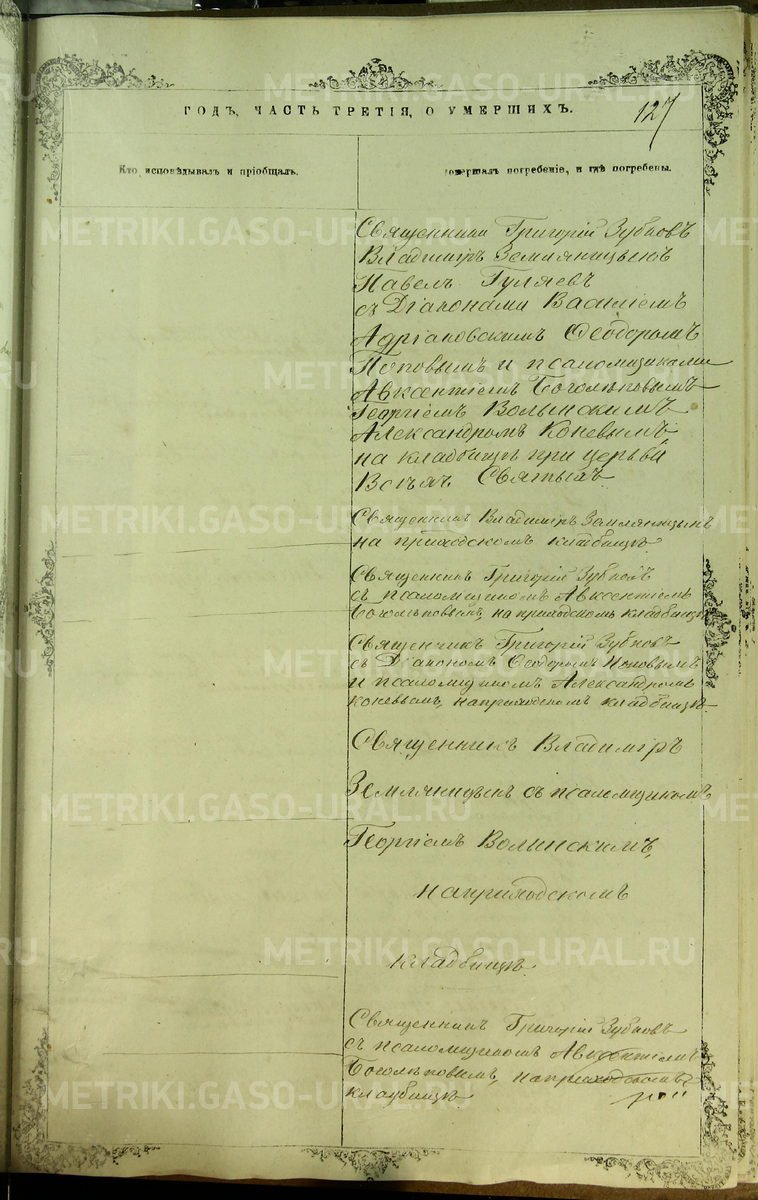 ГОДЪ, ЧАСТЬ ТРЕТІЯ, О УМЕРШИХЪ.
127
Кто исповѣдывалъ и пріобщалъ.
совершалъ погребеніе, и гдѣ погребены.
Священники Григорій Зубковъ
Владиміръ Землянищынъ
Павелъ Гуляевъ
съ Діаконами Василіемъ
Адріановскимъ Ѳеодоромъ
Поповымъ и псаломщиками
Авксентіемъ Боголѣповымъ
Георгіемъ Волынскимъ
Александромъ Коневымъ
на кладбищѣ при церкви
Всѣхъ Святыхъ
Священникъ Владиміръ Земляницынъ
на приходскомъ кладбищѣ
Священникъ Григорій Зубковъ
съ псаломщикомъ Авксентіемъ
Боголѣповымъ, на приходскомъ кладбищѣ
Священникъ Григорій Зубковъ
съ Діакономъ Ѳеодоромъ Поповымъ
и псаломщикомъ Александромъ
Коневымъ, на приходскомъ кладбищѣ.
Священникъ Владиміръ
Земляницынъ съ псаломщикомъ
Георгіемъ Волынскимъ,
на приходскомъ
кладбищѣ.
Священникъ Григорій Зубковъ
съ псаломщикомъ Авксентіемъ
Боголѣповымъ, на приходскомъ
кладбищѣ.
METRIKI.GASO-URAL.RU